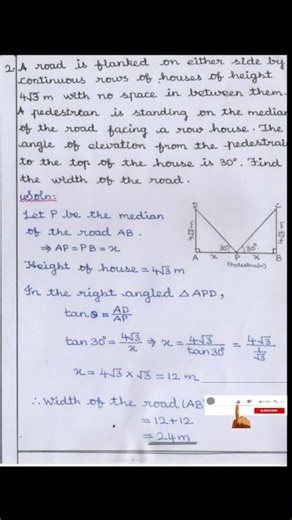 2. A road is flanked on either side by
continuous rows of houses of height
4√3 m with no space in between them.
A pedestrean is standing on the median
of the road facing a row house. The
angle of elevation from the pedestrain
to the top of the house is 30°. Find
the width of the road.
Soln:
Let P be the median
of the road AB.
⇒ AP = PB = x
Height of house = 4√3 m
D C
4√3 4√3
30° 30°
A x P x B
(Pedestrian)
In the right angled △ APD,
tan θ = AD/AP
tan 30° = 4√3/x ⇒ x = 4√3/tan 30° = 4√3/(1/√3)
x = 4√3 × √3 = 12 m
∴ Width of the road (AB)
= 12+12
= 24 m
SUBSCRIBE